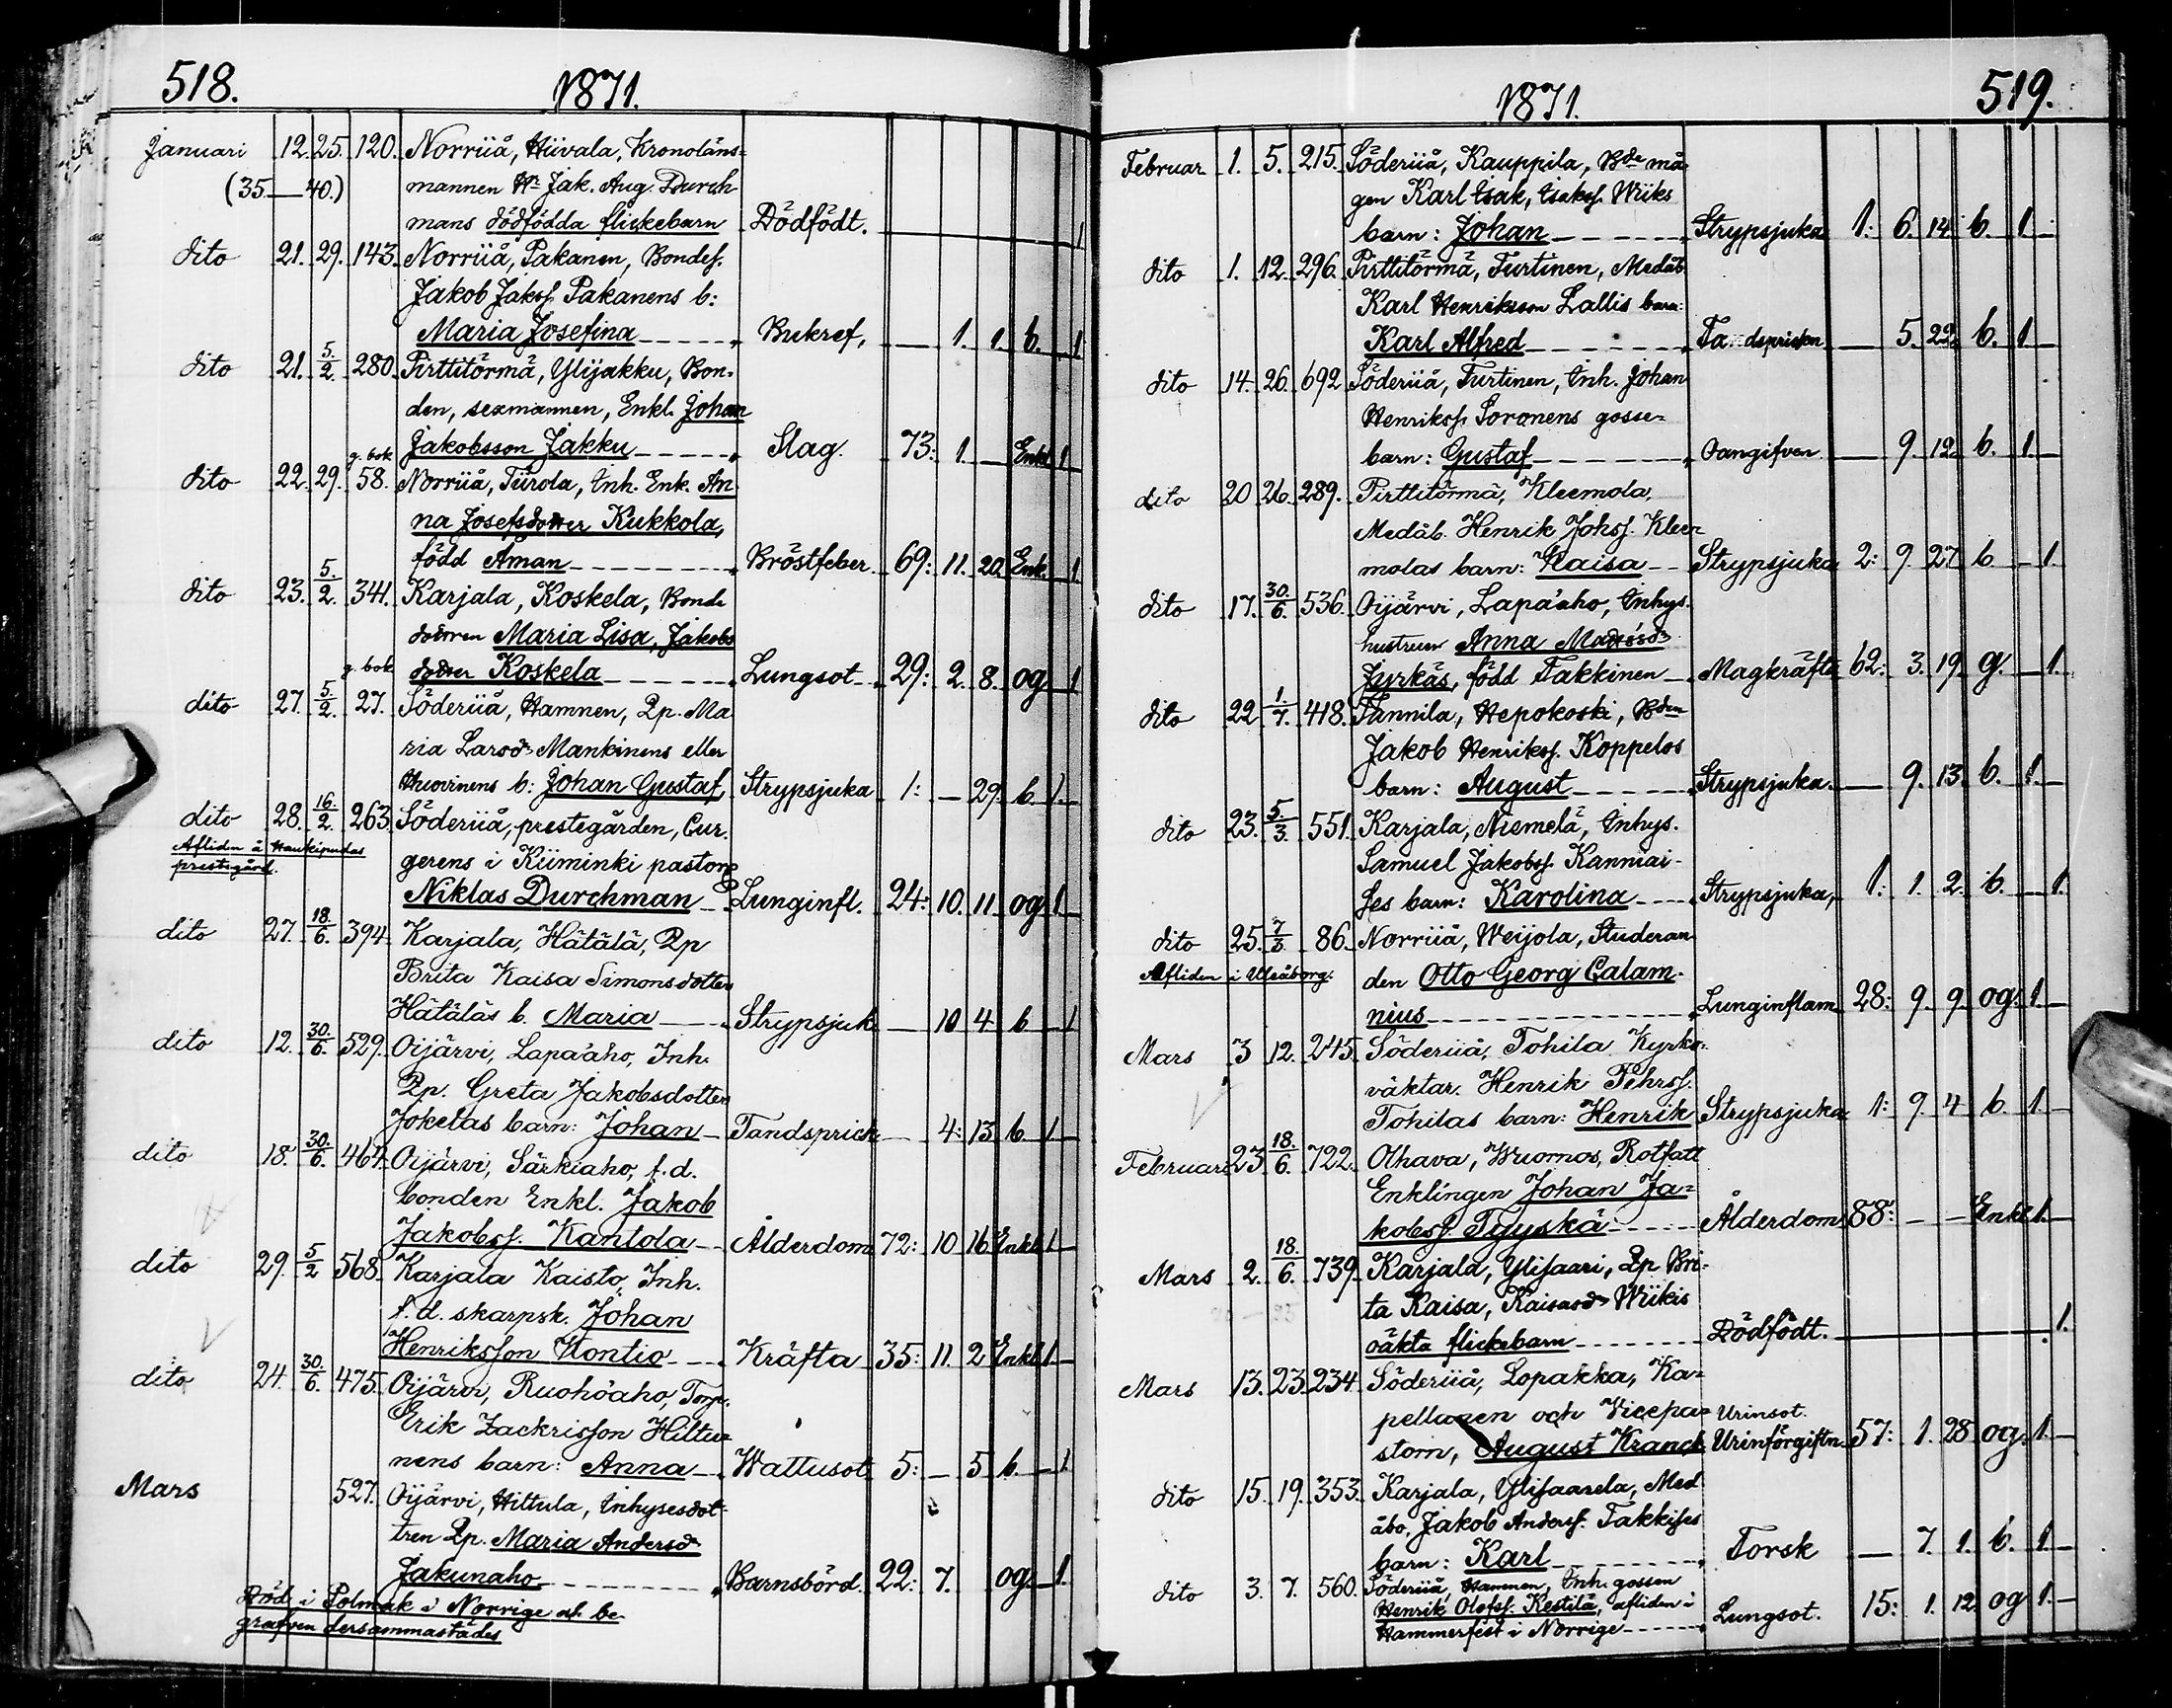 518.
1871.
Januari 12. 25. 120. Norriiå, Hiivala, Kronoläns-
(35—40.) mannen Hr Jak. Aug. Durch
mans dödfödda flickebarn Dödfödt. 1
dito 21. 29. 143. Norriiå, Pakanen, Bondes.
Jakob Jakss. Pakanens b:
Maria Josefina Bukref, — 1. 1. b. 1
dito 21. 5/2. 280. Pirttitörmä, Ylijakku, Bon-
den, sexmannen, Enkl. Johan
Jakobsson Jakku Slag. 73: 1. — Enkl 1
g. bok
dito 22. 29. 58. Norriiå, Tiirola, Inh. Enk. An
na Josefsdotter Kukkola,
född Aman Bröstfeber. 69: 11. 20. Enk. 1
dito 23. 5/2. 341. Karjala, Koskela, Bonde
dottren Maria Lisa, Jakobs
dotter Koskela Lungsot 29: 2. 8. og 1
g. bok
dito 27. 5/2. 27. Söderiiå, Hamnen, Pp. Ma
ria Larsdr Mankinens eller
Huovinens b: Johan Gustaf, Strypsjuka 1: — 29. b. 1.
dito 28. 16/2. 263. Söderiiå, prestegården, Cur.
Afliden å Haukipudas
prestegård.
gerens i Kiiminki pastorn
Niklas Durchman Lunginfl. 24: 10. 11. og 1
dito 27. 18/6. 394. Karjala, Hätälä, Pp
Brita Kaisa Simonsdotter
Hätäläs b. Maria Strypsjuk — 10 4 b 1
dito 12. 30/6. 529. Oijärvi, Lapa'aho, Inh.
Pp. Greta Jakobsdotter
Jokelas barn: Johan Tandsprick — 4: 13 b 1
dito 18. 30/6. 464. Oijärvi, Särkiaho, f.d.
bonden Enkl. Jakob
Jakobss. Kantola Ålderdom 72: 10 16 Enkl 1
dito 29. 5/2 568. Karjala Kaisto, Inh.
f.d. skarpsk. Johan
Henriksson Kontio Kräfta 35: 11. 2 Enkl 1
dito 24. 30/6. 475. Oijärvi, Ruohöaho, Torp.
Erik Zackrisson Hiltu-
nens barn: Anna Wattusot 5: — 5 b. 1.
Mars 527. Oijärvi, Hiltula, Inhysesdot-
tren Pp. Maria Andersdr
Jakunaho Barnsbörd. 22: 7. og. 1.
Död i Polmak i Norrige ok be-
grafven dersammastädes
1871.
519.
Februar 1. 5. 215. Söderiiå, Kauppila, Bde må
gen Karl Isak, Isakss. Wiiks
barn: Johan Strypsjuka 1: 6. 14. b. 1.
dito 1. 12. 296. Pirttitörmä, Turtinen, Medåb
Karl Henriksson Lallis barn:
Karl Alfred Ta dspricken — 5. 22. b. 1
dito 14. 26. 692 Söderiiå, Turtinen, Inh. Johan
Henrikss. Soronens gosse-
barn: Gustaf Oangifven. — 9. 12. b. 1.
dito 20 26. 289. Pirttitörmä, Kleemola,
Medåb. Henrik Johss. Klee-
molas barn: Kaisa Strypsjuka 2: 9. 27 b 1.
dito 17. 30/6. 536. Oijärvi, Lapa'aho, Inhys.
hustrun Anna Madtsdr
Jyrkäs, född Takkinen Magkräfta 62: 3. 19. g. 1.
dito 22 1/7. 418. Tannila, Hepokoski, Bden
Jakob Henrikss. Koppelos
barn: August Strypsjuka. — 9. 13. b. 1.
dito 23. 5/3. 551. Karjala, Niemelä, Inhys.
Samuel Jakobss. Kanniai-
ses barn: Karolina Strypsjuka, 1: 1. 2. b. 1.
dito 25. 7/3. 86. Norriiå, Weijola, Studeran
Afliden i Uleåborg. den Otto Georg Calam-
nius Lunginflam. 28: 9. 9. og. 1.
Mars 3 12. 245. Söderiiå, Tohila Kyrko-
väktar. Henrik Pehrss.
Tohilas barn: Henrik Strypsjuka 1: 9. 4 b. 1.
Februari 23. 18/6. 722. Olhava, Wuornos, Rotfatt
Enklingen Johan Ja-
kobss. Tyyskä Ålderdom 88: — — Enkl 1.
Mars 2. 18/6. 739. Karjala, Ylisaari, Pp Bri-
ta Kaisa, Kaisasdr Wiikis
oäkta flickebarn Dödfödt. 1.
Mars 13. 23. 234. Söderiiå, Lopakka, Ka-
pellanen och Vicepa- Urinsot.
storn, August Kranck Urinförgiftn. 57: 1. 28 og. 1.
dito 15. 19. 353. Karjala, Ylisaarela, Med
åbo, Jakob Anderss. Takkises
barn: Karl Torsk — 7. 1. b. 1.
dito 3. 7. 560. Söderiiå, Hamnen, Inh. gossen
Henrik Olofss. Kestilä, afliden i
Hammerfest i Norrige Lungsot. 15: 1. 12. og 1.